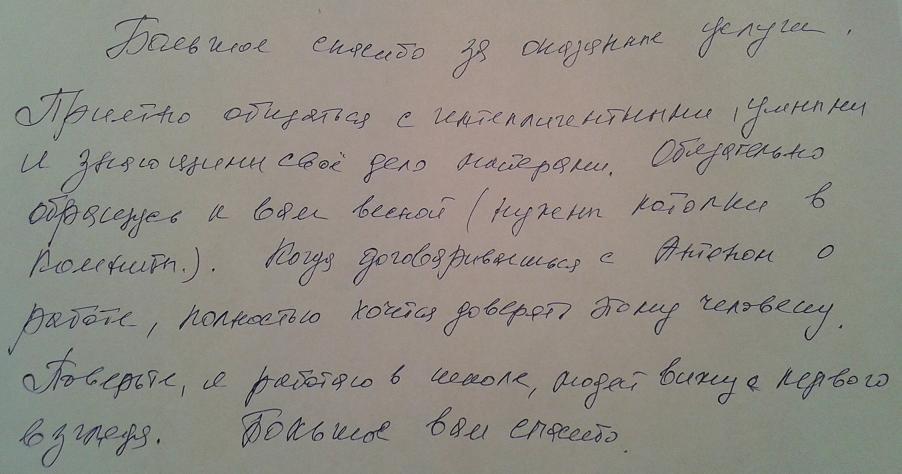 Большое спасибо за оказанные услуги.
Приятно общаться с интеллигентными, умными
и знающими своё дело мастерами. Обязательно
обращусь к вам весной (нужны потолки в
комнаты.). Когда договариваешься с Антоном о
работе, полностью хочется доверять этому человеку.
Поверьте, я работаю в школе, людей вижу с первого
взгляда. Большое вам спасибо.